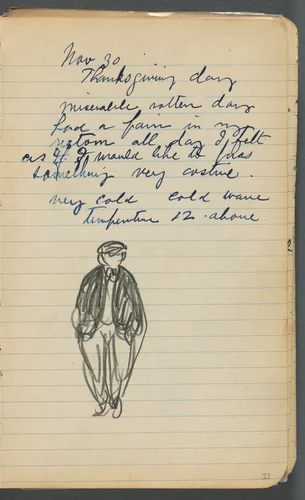 Nov 30
Thanksgiving day
miserable rotten day
had a pain in my
all day I felt
as if I would like to
something very costive.
very cold cold wave
temperature 12 above